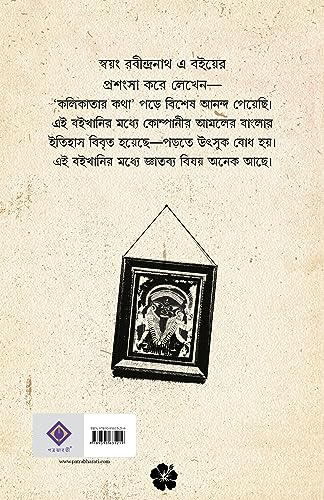 স্বয়ং রবীন্দ্রনাথ এ বইয়ের
প্রশংসা করে লেখেন—
‘কলিকাতার কথা’ পড়ে বিশেষ আনন্দ পেয়েছি।
এই বইখানির মধ্যে কোম্পানীর আমলের বাংলার
ইতিহাস বিবৃত হয়েছে—পড়তে উৎসুক বোধ হয়।
এই বইখানির মধ্যে জ্ঞাতব্য বিষয় অনেক আছে।
পত্রভারতী
www.patrabharati.com